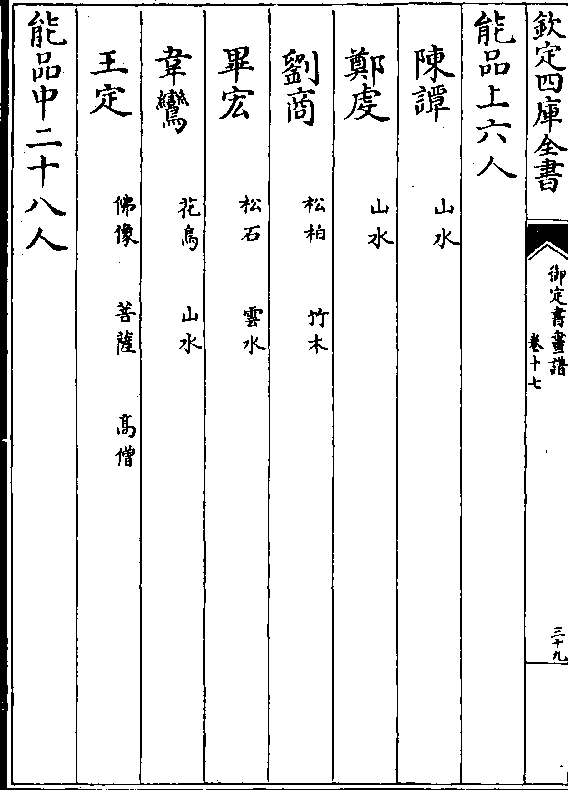 欽定四庫全書
御定書畫譜
卷十七
三十九
能品上六人
陳譚 山水
鄭虔 山水
劉商 松柏 竹木
畢宏 松石 雲水
韋鸞 花鳥 山水
王定 佛像 菩薩 高僧
能品中二十八人